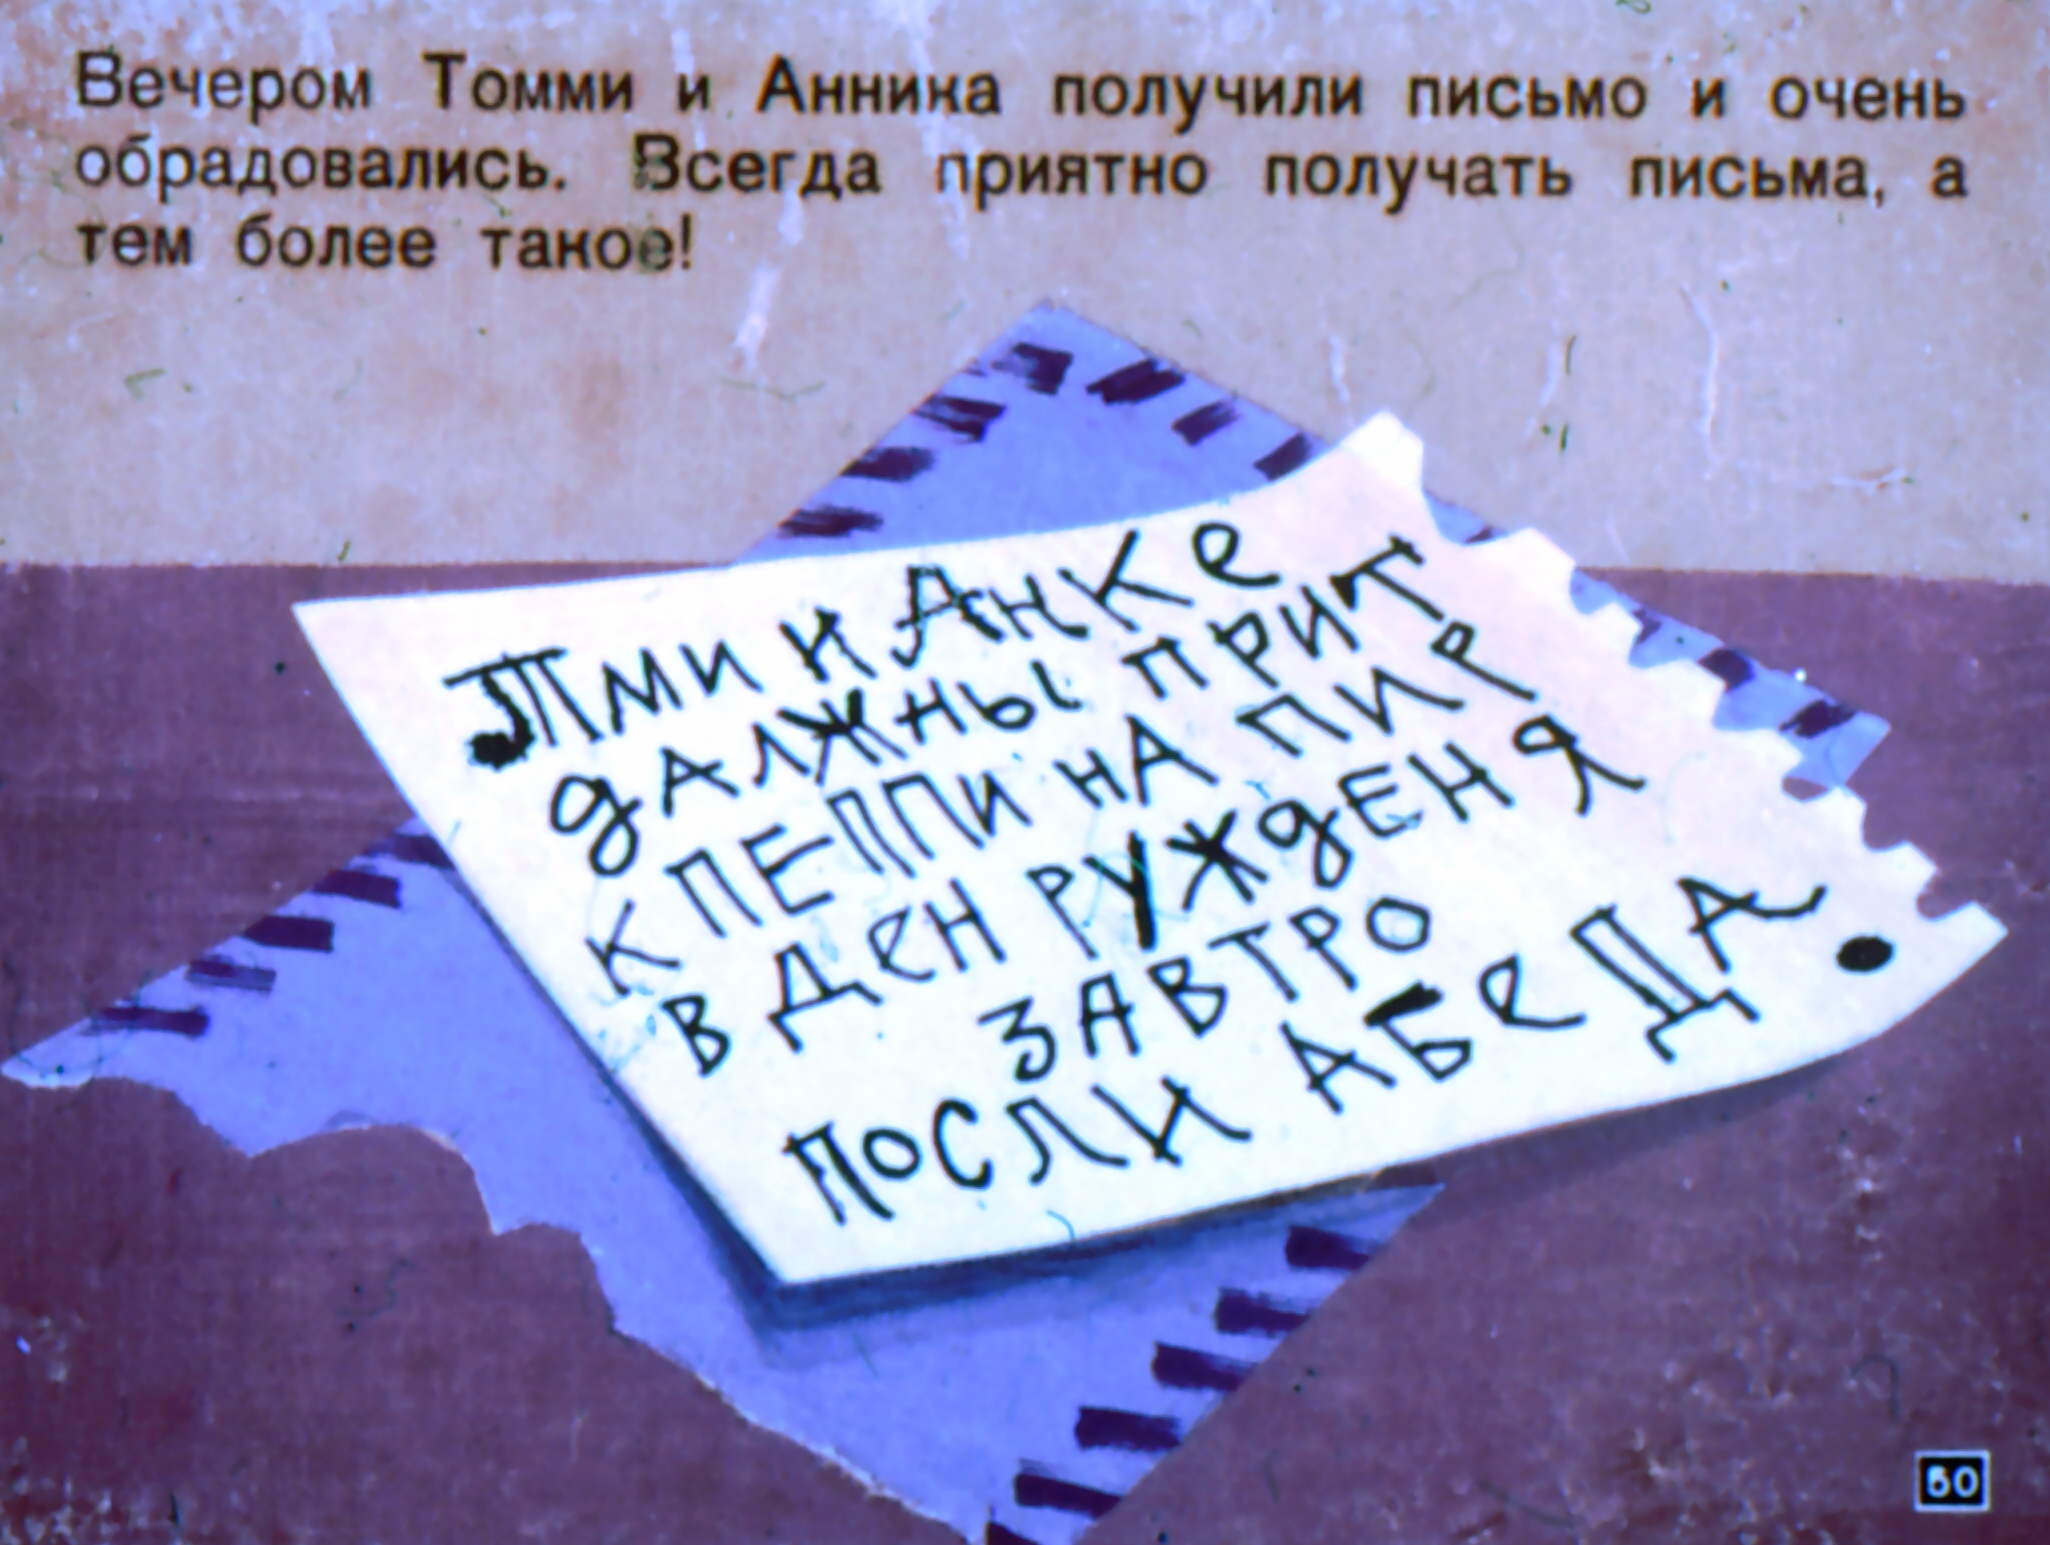 Вечером Томми и Анника получили письмо и очень
обрадовались. Всегда приятно получать письма, а
тем более такое!
Тми и Анке
далжны прит
к Пеппи на пир
в ден ружденя
завтро
посли абеда.
50